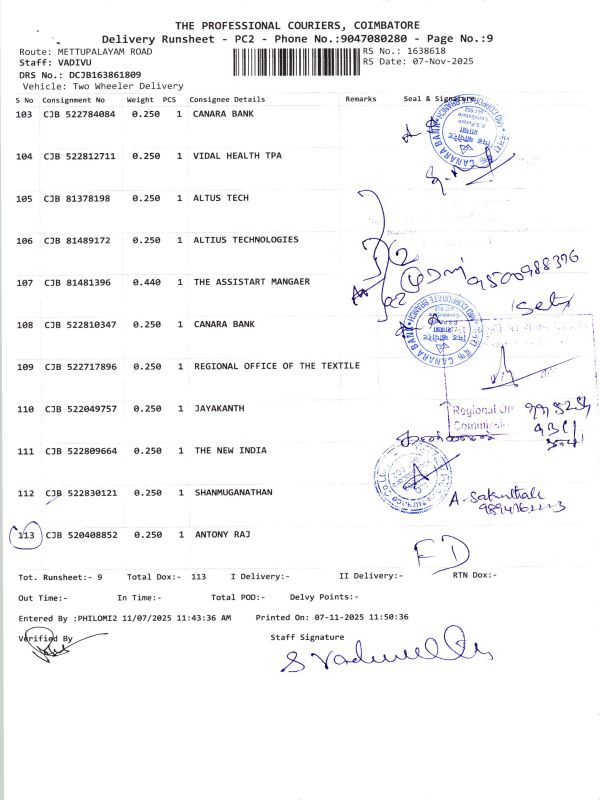 THE PROFESSIONAL COURIERS, COIMBATORE
Delivery Runsheet - PC2 - Phone No.:9047080280 - Page No.:9
Route: METTUPALAYAM ROAD RS No.: 1638618
Staff: VADIVU RS Date: 07-Nov-2025
DRS No.: DCJB163861809
Vehicle: Two Wheeler Delivery
S No Consignment No Weight PCS Consignee Details Remarks Seal & Signature
103 CJB 522784084 0.250 1 CANARA BANK
CANARA BANK
104 CJB 522812711 0.250 1 VIDAL HEALTH TPA
105 CJB 81378198 0.250 1 ALTUS TECH
106 CJB 81489172 0.250 1 ALTIUS TECHNOLOGIES
9500988376
107 CJB 81481396 0.440 1 THE ASSISTART MANGAER
108 CJB 522810347 0.250 1 CANARA BANK
CANARA BANK
109 CJB 522717896 0.250 1 REGIONAL OFFICE OF THE TEXTILE
110 CJB 522049757 0.250 1 JAYAKANTH
Regional Of
111 CJB 522809664 0.250 1 THE NEW INDIA
112 CJB 522830121 0.250 1 SHANMUGANATHAN
A. Sakunthala
113 CJB 520408852 0.250 1 ANTONY RAJ
Tot. Runsheet:- 9 Total Dox:- 113 I Delivery:- II Delivery:- RTN Dox:-
Out Time:- In Time:- Total POD:- Delvy Points:-
Entered By :PHILOMI2 11/07/2025 11:43:36 AM Printed On: 07-11-2025 11:50:36
Verified By Staff Signature